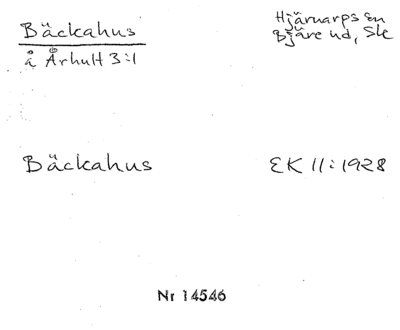 Bäckahus
å Århult 3:1
Hjärnarps sn
Bjäre hd, Sk
Bäckahus
EK 11:1928
Nr 14546